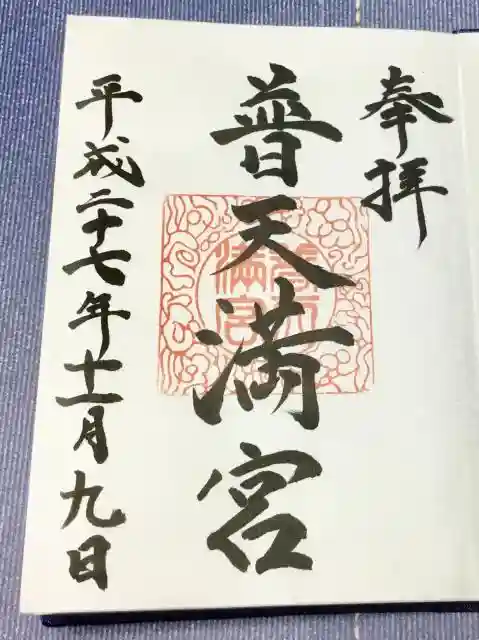 奉拝
普天満宮
平成二十七年十一月九日
普天
満宮